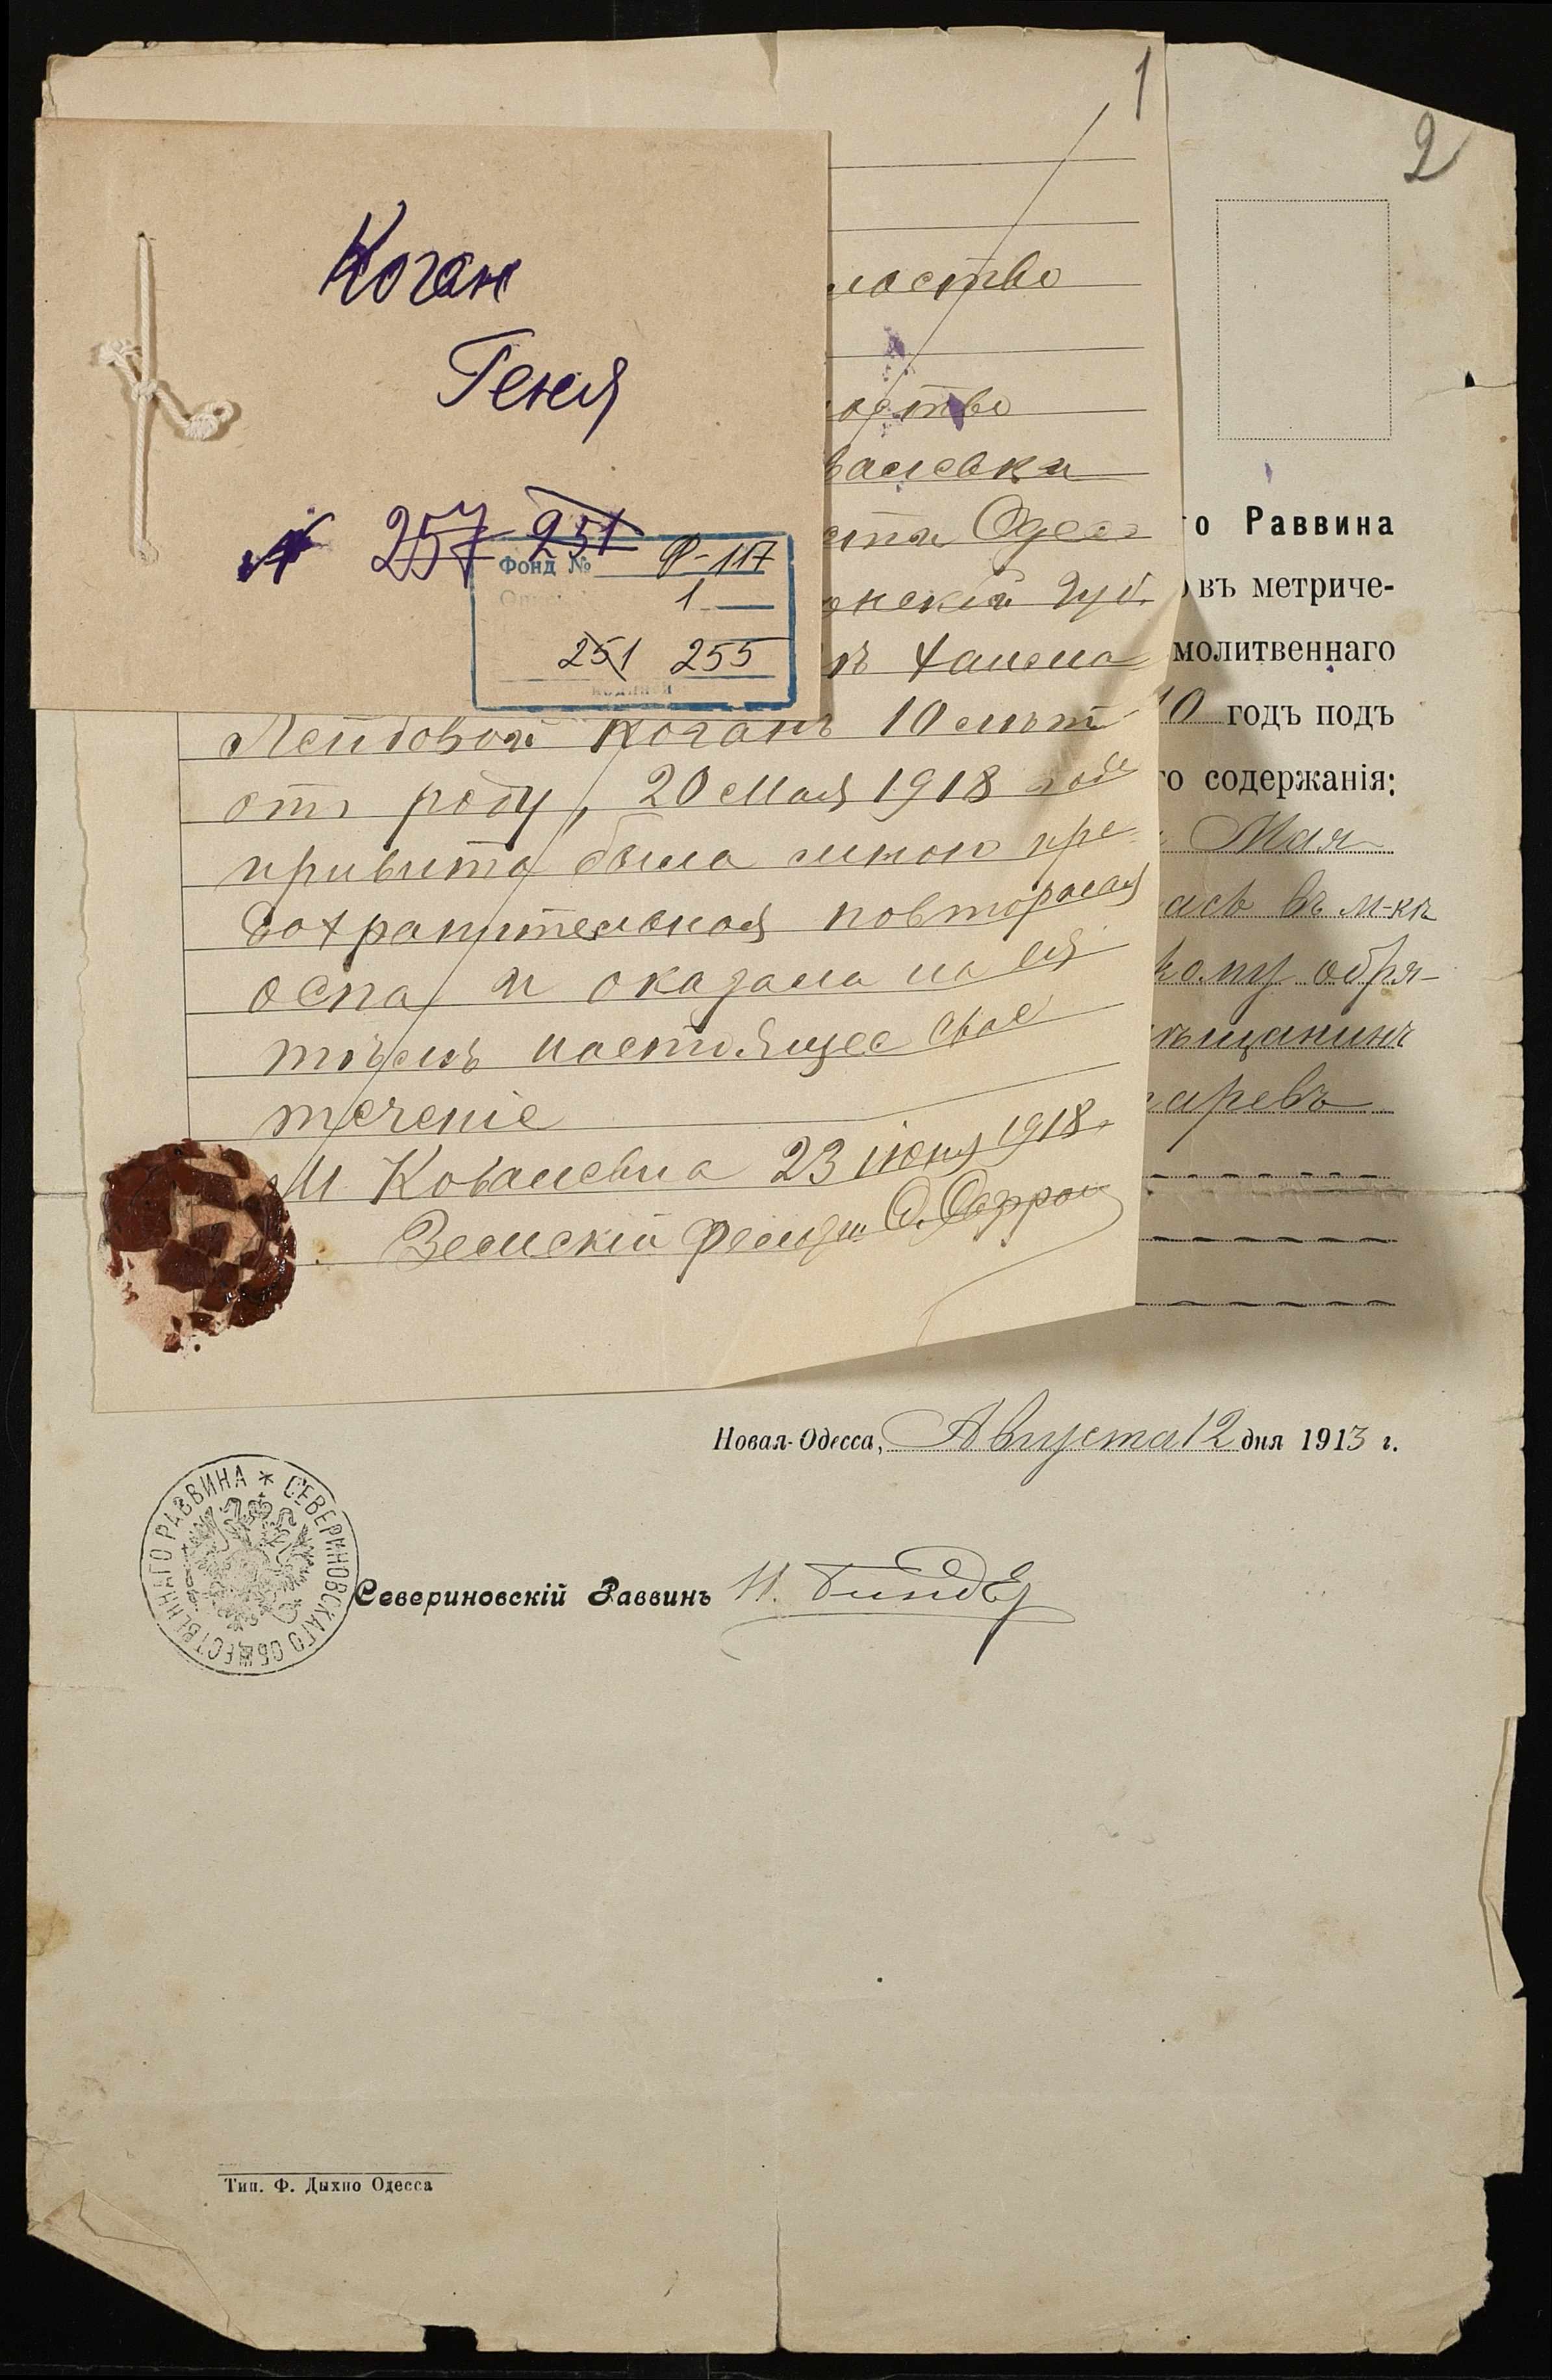 1
2
Коган
Геня
№ 257 251
Фонд № Ф-117
1
251 255
ство
ство
валевки
Одес
нской Губ.
Лейбовой Коганъ 10 лѣтъ
отъ роду, 20 Мая 1918 года
привита была мною пре-
дохранительная
оспа и оказала на ея
тѣлѣ настоящее свое
теченіе
М Ковалевка 23 іюня 1918.
Земскій Фельдш.
о Раввина
въ метриче-
молитвеннаго
10 годъ подъ
го содержанія:
Мая
ась въ м-кѣ
кому обря-
мѣщанинъ
аревъ
Новая-Одесса, Августа 12 дня 1913 г.
СЕВЕРИНОВСКАГО ОБЩЕСТВЕННАГО РАВВИНА
Севериновскій Раввинъ
Тип. Ф. Дыхно Одесса